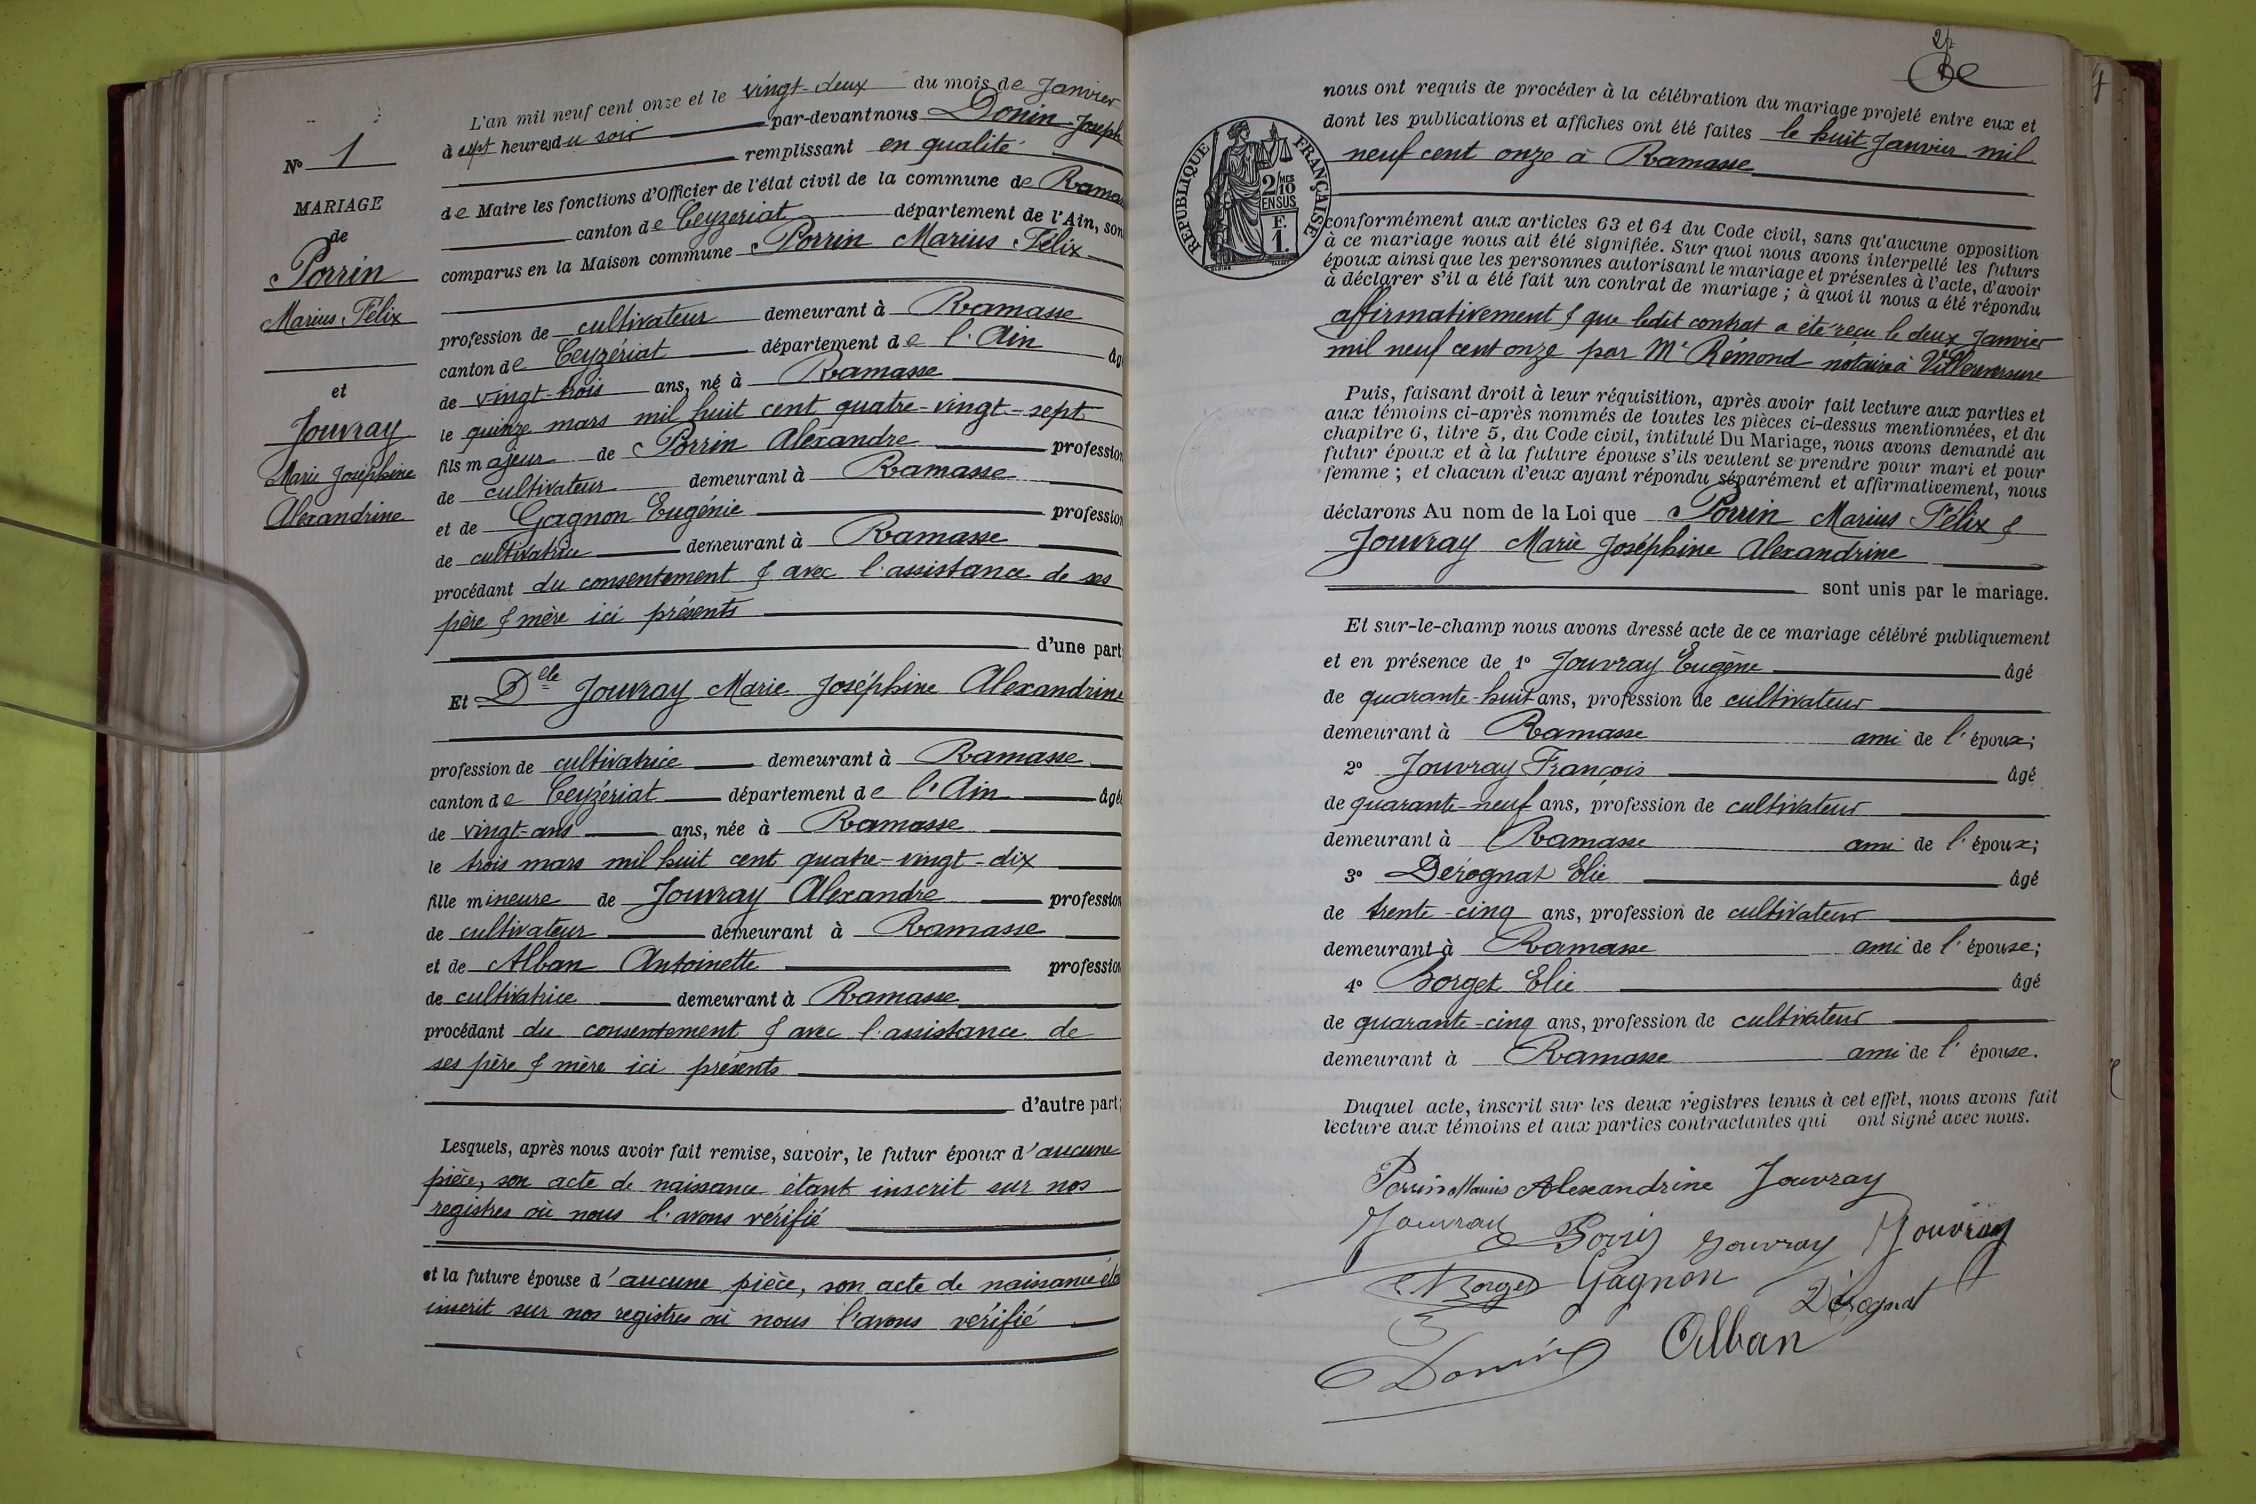 N° 1
MARIAGE
de
Porrin
Marius Félix
et
Jouvray
Marie Joséphine
Alexandrine
L'an mil neuf cent onze et le vingt-deux du mois de Janvier
à sept heures du soir par-devant nous Donin Joseph
remplissant en qualité
de Maire les fonctions d'Officier de l'état civil de la commune de
canton de Ceyzeriat département de l'Ain, sont
comparus en la Maison commune Porrin Marius Félix
profession de cultivateur demeurant à Ramasse
canton de Ceyzériat département de l'Ain âgé
de vingt-trois ans, né à Ramasse
le quinze mars mil huit cent quatre-vingt-sept
fils majeur de Porrin Alexandre profession
de cultivateur demeurant à Ramasse
et de Gagnon Eugénie profession
de cultivatrice demeurant à Ramasse
procédant du consentement & avec l'assistance de ses
père & mère ici présents
d'une part;
Et Delle Jouvray Marie Joséphine Alexandrine
profession de cultivatrice demeurant à Ramasse
canton de Ceyzériat département de l'Ain âgée
de vingt-ans ans, née à Ramasse
le trois mars mil huit cent quatre-vingt-dix
fille mineure de Jouvray Alexandre profession
de cultivateur demeurant à Ramasse
et de Alban Antoinette profession
de cultivatrice demeurant à Ramasse
procédant du consentement & avec l'assistance de
ses père & mère ici présents
d'autre part;
Lesquels, après nous avoir fait remise, savoir, le futur époux d'aucune
pièce, son acte de naissance étant inscrit sur nos
registres où nous l'avons vérifié
et la future épouse d'aucune pièce, son acte de naissance
inscrit sur nos registres où nous l'avons vérifié
nous ont requis de procéder à la célébration du mariage projeté entre eux et
dont les publications et affiches ont été faites le huit Janvier mil
neuf cent onze à Ramasse
RÉPUBLIQUE FRANÇAISE
2/10
EN SUS
F.
1.
conformément aux articles 63 et 64 du Code civil, sans qu'aucune opposition
à ce mariage nous ait été signifiée. Sur quoi nous avons interpellé les futurs
époux ainsi que les personnes autorisant le mariage et présentes à l'acte, d'avoir
à déclarer s'il a été fait un contrat de mariage ; à quoi il nous a été répondu
affirmativement & que ledit contrat a été reçu le deux Janvier
mil neuf cent onze par Me Rémond notaire à Villereversure
Puis, faisant droit à leur réquisition, après avoir fait lecture aux parties et
aux témoins ci-après nommés de toutes les pièces ci-dessus mentionnées, et du
chapitre 6, titre 5, du Code civil, intitulé Du Mariage, nous avons demandé au
futur époux et à la future épouse s'ils veulent se prendre pour mari et pour
femme ; et chacun d'eux ayant répondu séparément et affirmativement, nous
déclarons Au nom de la Loi que Porrin Marius Félix &
Jouvray Marie Joséphine Alexandrine
sont unis par le mariage.
Et sur-le-champ nous avons dressé acte de ce mariage célébré publiquement
et en présence de 1° Jouvray Eugène âgé
de quarante-huit ans, profession de cultivateur
demeurant à Ramasse ami de l'époux;
2° Jouvray François âgé
de quarante-neuf ans, profession de cultivateur
demeurant à Ramasse ami de l'époux;
3° Dérognat Elie âgé
de trente-cinq ans, profession de cultivateur
demeurant à Ramasse ami de l'épouse;
4° Borget Elie âgé
de quarante-cinq ans, profession de cultivateur
demeurant à Ramasse ami de l'épouse.
Duquel acte, inscrit sur les deux registres tenus à cet effet, nous avons fait
lecture aux témoins et aux parties contractantes qui ont signé avec nous.
Porrin Marius Alexandrine Jouvray
Jouvray Porrin Jouvray Jouvray
Borget Gagnon Dérognat
Donin Alban